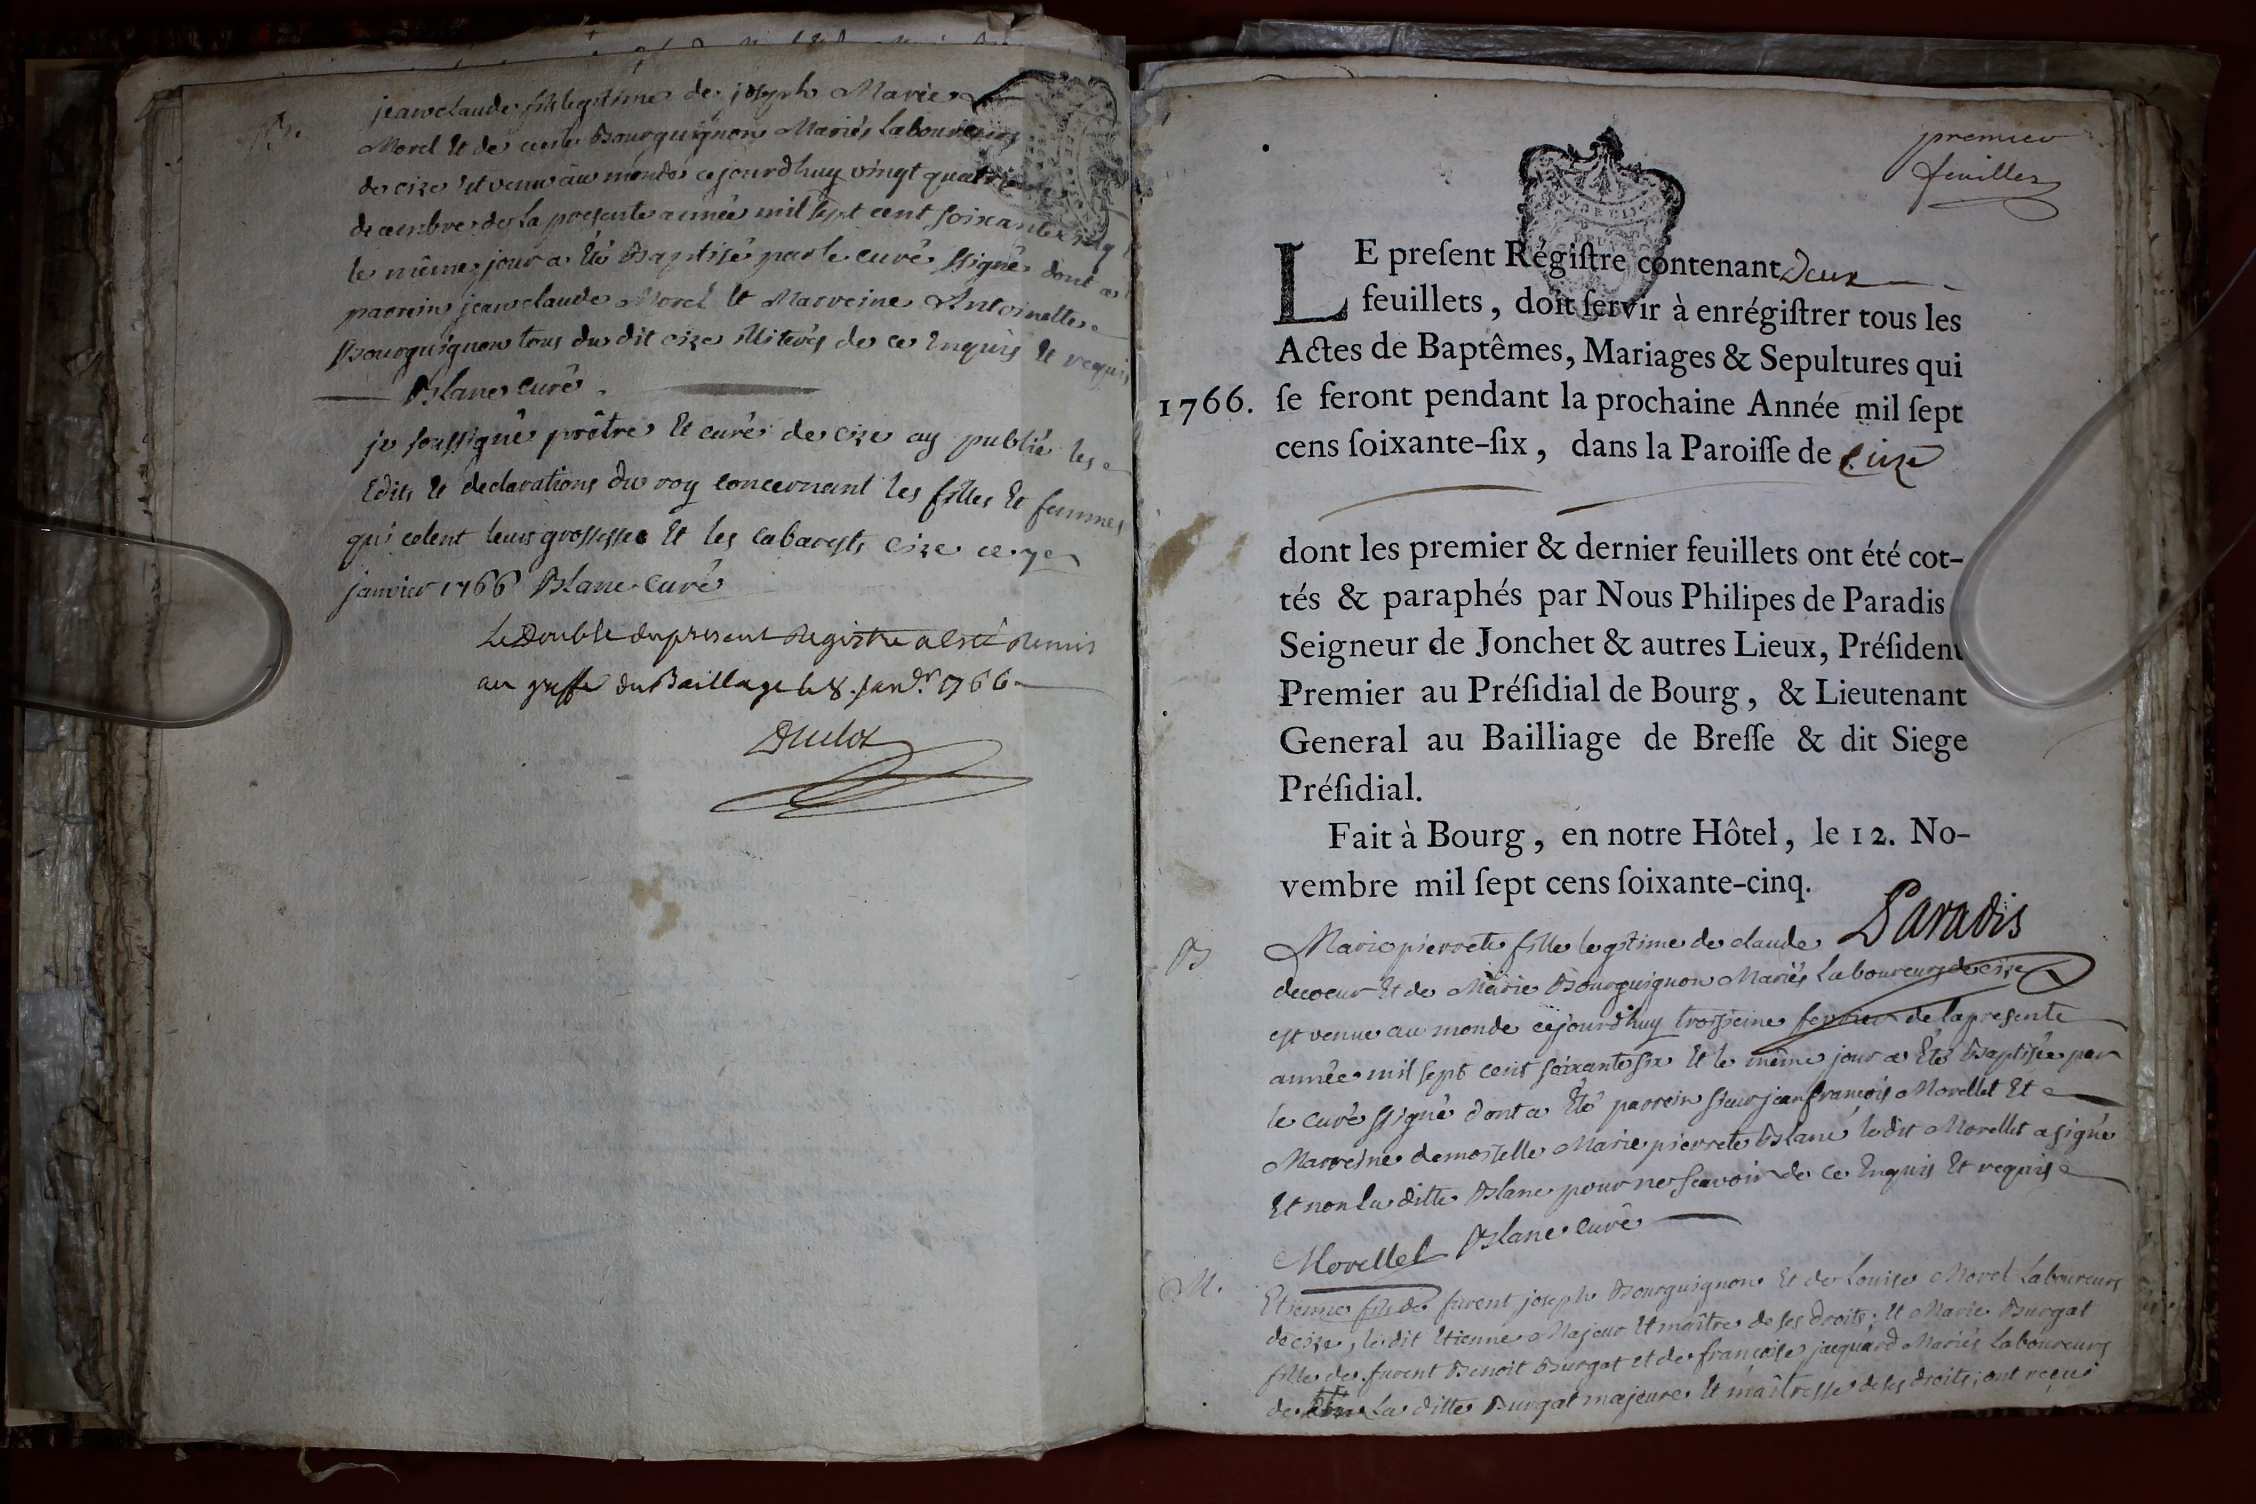 B.
jean claude fils legitime de joseph Marie
Morel Et de Bourguignon Mariés Laboureurs
de cize est venu au monde cejourdhuy vingt quatrieme
decembre de La presente année mil sept cent soixante cinq
le même jour a Eté Baptisé par le curé ssigné dont a
parrein jean claude Morel Et Marreine Antoinette
Bourguignon tous du dit cize illiterés de ce Enquis Et requis
Blanc curé
je soussigné prêtre Et curé de cize ay publié les
Edits Et declarations du roy concernant les filles Et femmes
qui celent leurs grossesse Et les cabarests cize ce
janvier 1766 Blanc curé
Le Double du present Registre a Esté Remis
au greffe du Baillage le 8. Janvr. 1766
Duclos
premier
feuillet
LE preſent Régiſtre contenant Deux
feuillets, doit ſervir à enrégiſtrer tous les
Actes de Baptêmes, Mariages & Sepultures qui
1766. ſe feront pendant la prochaine Année mil ſept
cens ſoixante-ſix, dans la Paroiſſe de Cize
dont les premier & dernier feuillets ont été cot-
tés & paraphés par Nous Philipes de Paradis
Seigneur de Jonchet & autres Lieux, Préſident
Premier au Préſidial de Bourg, & Lieutenant
General au Bailliage de Breſſe & dit Siege
Préſidial.
Fait à Bourg, en notre Hôtel, le 12. No-
vembre mil ſept cens ſoixante-cinq.
Paradis
B
Marie pierrete fille legitime de claude
decoeur Et de Marie Bourguignon Mariés Laboureurs de cize
est venue au monde cejourd'huy troisieme fevrier de la presente
année mil sept cent soixante six Et le même jour a Eté Baptisée par
le curé ssigné dont a Eté parrein sieur jean françois Morellet Et
Marreine demoiselle Marie pierrete Blanc le dit Morellet a signé
Et non La ditte Blanc pour ne sçavoir de ce Enquis Et requise
Morellet Blanc curé
M.
Etienne fils de furent joseph Bourguignon Et de Louise Morel Laboureurs
de cize, le dit Etienne Majeur Et maître de ses droits; Et Marie Burgat
fille de furent Benoit Burgat et de françoise jacquard Mariés Laboureurs
de La ditte Burgat majeure Et maîtresse de ses droits; ont reçeu